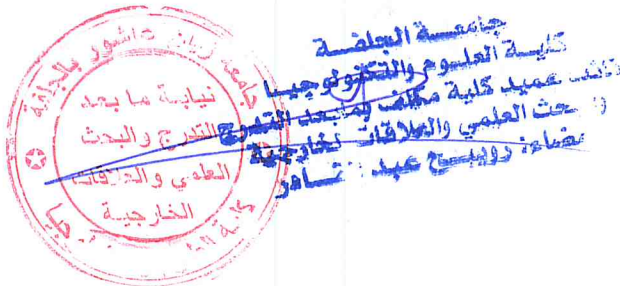 جامعة زيان عاشور بالجلفة
نيابة ما بعد
التدرج والبحث
العلمي والعلاقات
الخارجية
كلية
جامعة الجلفة
كلية العلوم والتكنولوجيا
نائب عميد كلية مكلف بما بعد التدرج
والبحث العلمي والعلاقات الخارجية
إمضاء: روبيح عبد القادر